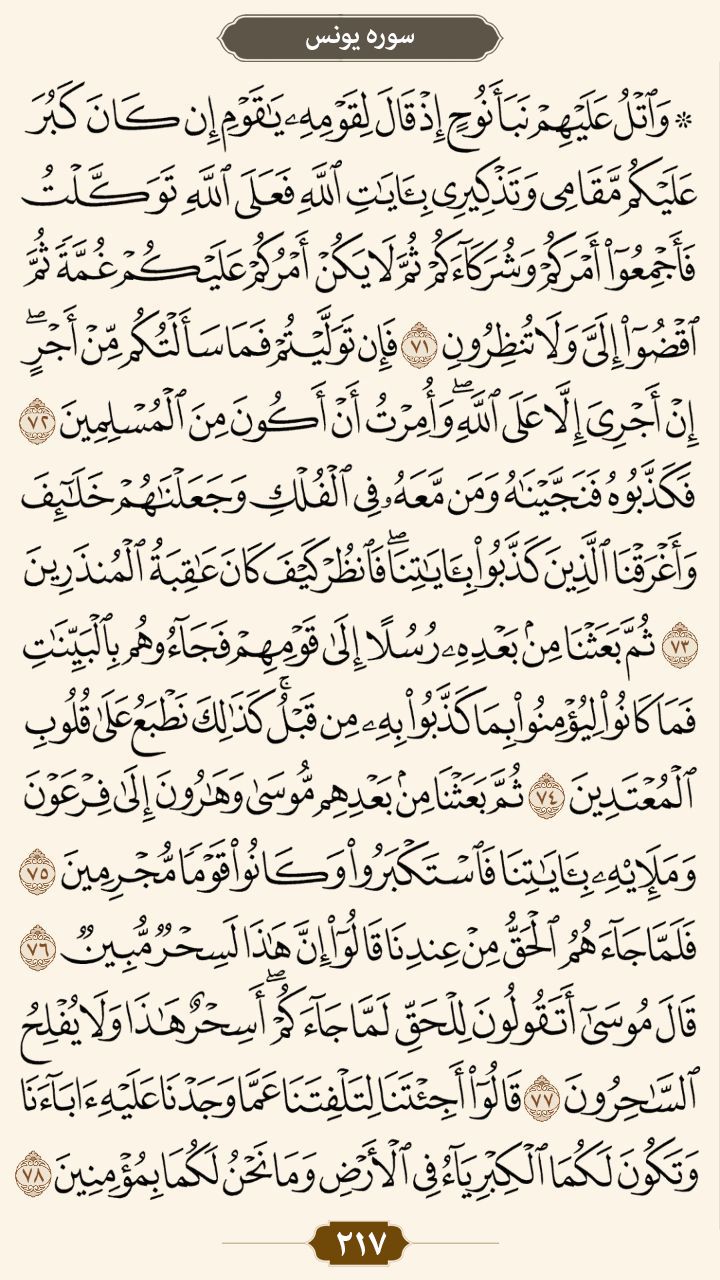 سوره یونس
۞ وَٱتۡلُ عَلَيۡهِمۡ نَبَأَ نُوحٍ إِذۡ قَالَ لِقَوۡمِهِۦ يَٰقَوۡمِ إِن كَانَ كَبُرَ
عَلَيۡكُم مَّقَامِي وَتَذۡكِيرِي بِـَٔايَٰتِ ٱللَّهِ فَعَلَى ٱللَّهِ تَوَكَّلۡتُ
فَأَجۡمِعُوٓاْ أَمۡرَكُمۡ وَشُرَكَآءَكُمۡ ثُمَّ لَا يَكُنۡ أَمۡرُكُمۡ عَلَيۡكُمۡ غُمَّةٗ ثُمَّ
ٱقۡضُوٓاْ إِلَيَّ وَلَا تُنظِرُونِ ٧١ فَإِن تَوَلَّيۡتُمۡ فَمَا سَأَلۡتُكُم مِّنۡ أَجۡرٍۖ
إِنۡ أَجۡرِيَ إِلَّا عَلَى ٱللَّهِۖ وَأُمِرۡتُ أَنۡ أَكُونَ مِنَ ٱلۡمُسۡلِمِينَ ٧٢
فَكَذَّبُوهُ فَنَجَّيۡنَٰهُ وَمَن مَّعَهُۥ فِي ٱلۡفُلۡكِ وَجَعَلۡنَٰهُمۡ خَلَٰٓئِفَ
وَأَغۡرَقۡنَا ٱلَّذِينَ كَذَّبُواْ بِـَٔايَٰتِنَاۖ فَٱنظُرۡ كَيۡفَ كَانَ عَٰقِبَةُ ٱلۡمُنذَرِينَ
٧٣ ثُمَّ بَعَثۡنَا مِنۢ بَعۡدِهِۦ رُسُلًا إِلَىٰ قَوۡمِهِمۡ فَجَآءُوهُم بِٱلۡبَيِّنَٰتِ
فَمَا كَانُواْ لِيُؤۡمِنُواْ بِمَا كَذَّبُواْ بِهِۦ مِن قَبۡلُۚ كَذَٰلِكَ نَطۡبَعُ عَلَىٰ قُلُوبِ
ٱلۡمُعۡتَدِينَ ٧٤ ثُمَّ بَعَثۡنَا مِنۢ بَعۡدِهِم مُّوسَىٰ وَهَٰرُونَ إِلَىٰ فِرۡعَوۡنَ
وَمَلَإِيْهِۦ بِـَٔايَٰتِنَا فَٱسۡتَكۡبَرُواْ وَكَانُواْ قَوۡمٗا مُّجۡرِمِينَ ٧٥
فَلَمَّا جَآءَهُمُ ٱلۡحَقُّ مِنۡ عِندِنَا قَالُوٓاْ إِنَّ هَٰذَا لَسِحۡرٞ مُّبِينٞ ٧٦
قَالَ مُوسَىٰٓ أَتَقُولُونَ لِلۡحَقِّ لَمَّا جَآءَكُمۡۖ أَسِحۡرٌ هَٰذَا وَلَا يُفۡلِحُ
ٱلسَّٰحِرُونَ ٧٧ قَالُوٓاْ أَجِئۡتَنَا لِتَلۡفِتَنَا عَمَّا وَجَدۡنَا عَلَيۡهِ ءَابَآءَنَا
وَتَكُونَ لَكُمَا ٱلۡكِبۡرِيَآءُ فِي ٱلۡأَرۡضِ وَمَا نَحۡنُ لَكُمَا بِمُؤۡمِنِينَ ٧٨
٢١٧